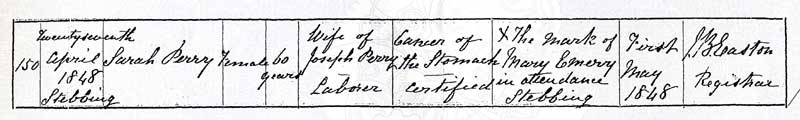 150
Twentyseventh
April
1848
Stebbing
Sarah Perry
Female
60
years
Wife of
Joseph Perry
Laborer
Cancer of
the Stomach
certified
X The mark of
Mary Emery
in attendance
Stebbing
First
May
1848
Easton
Registrar